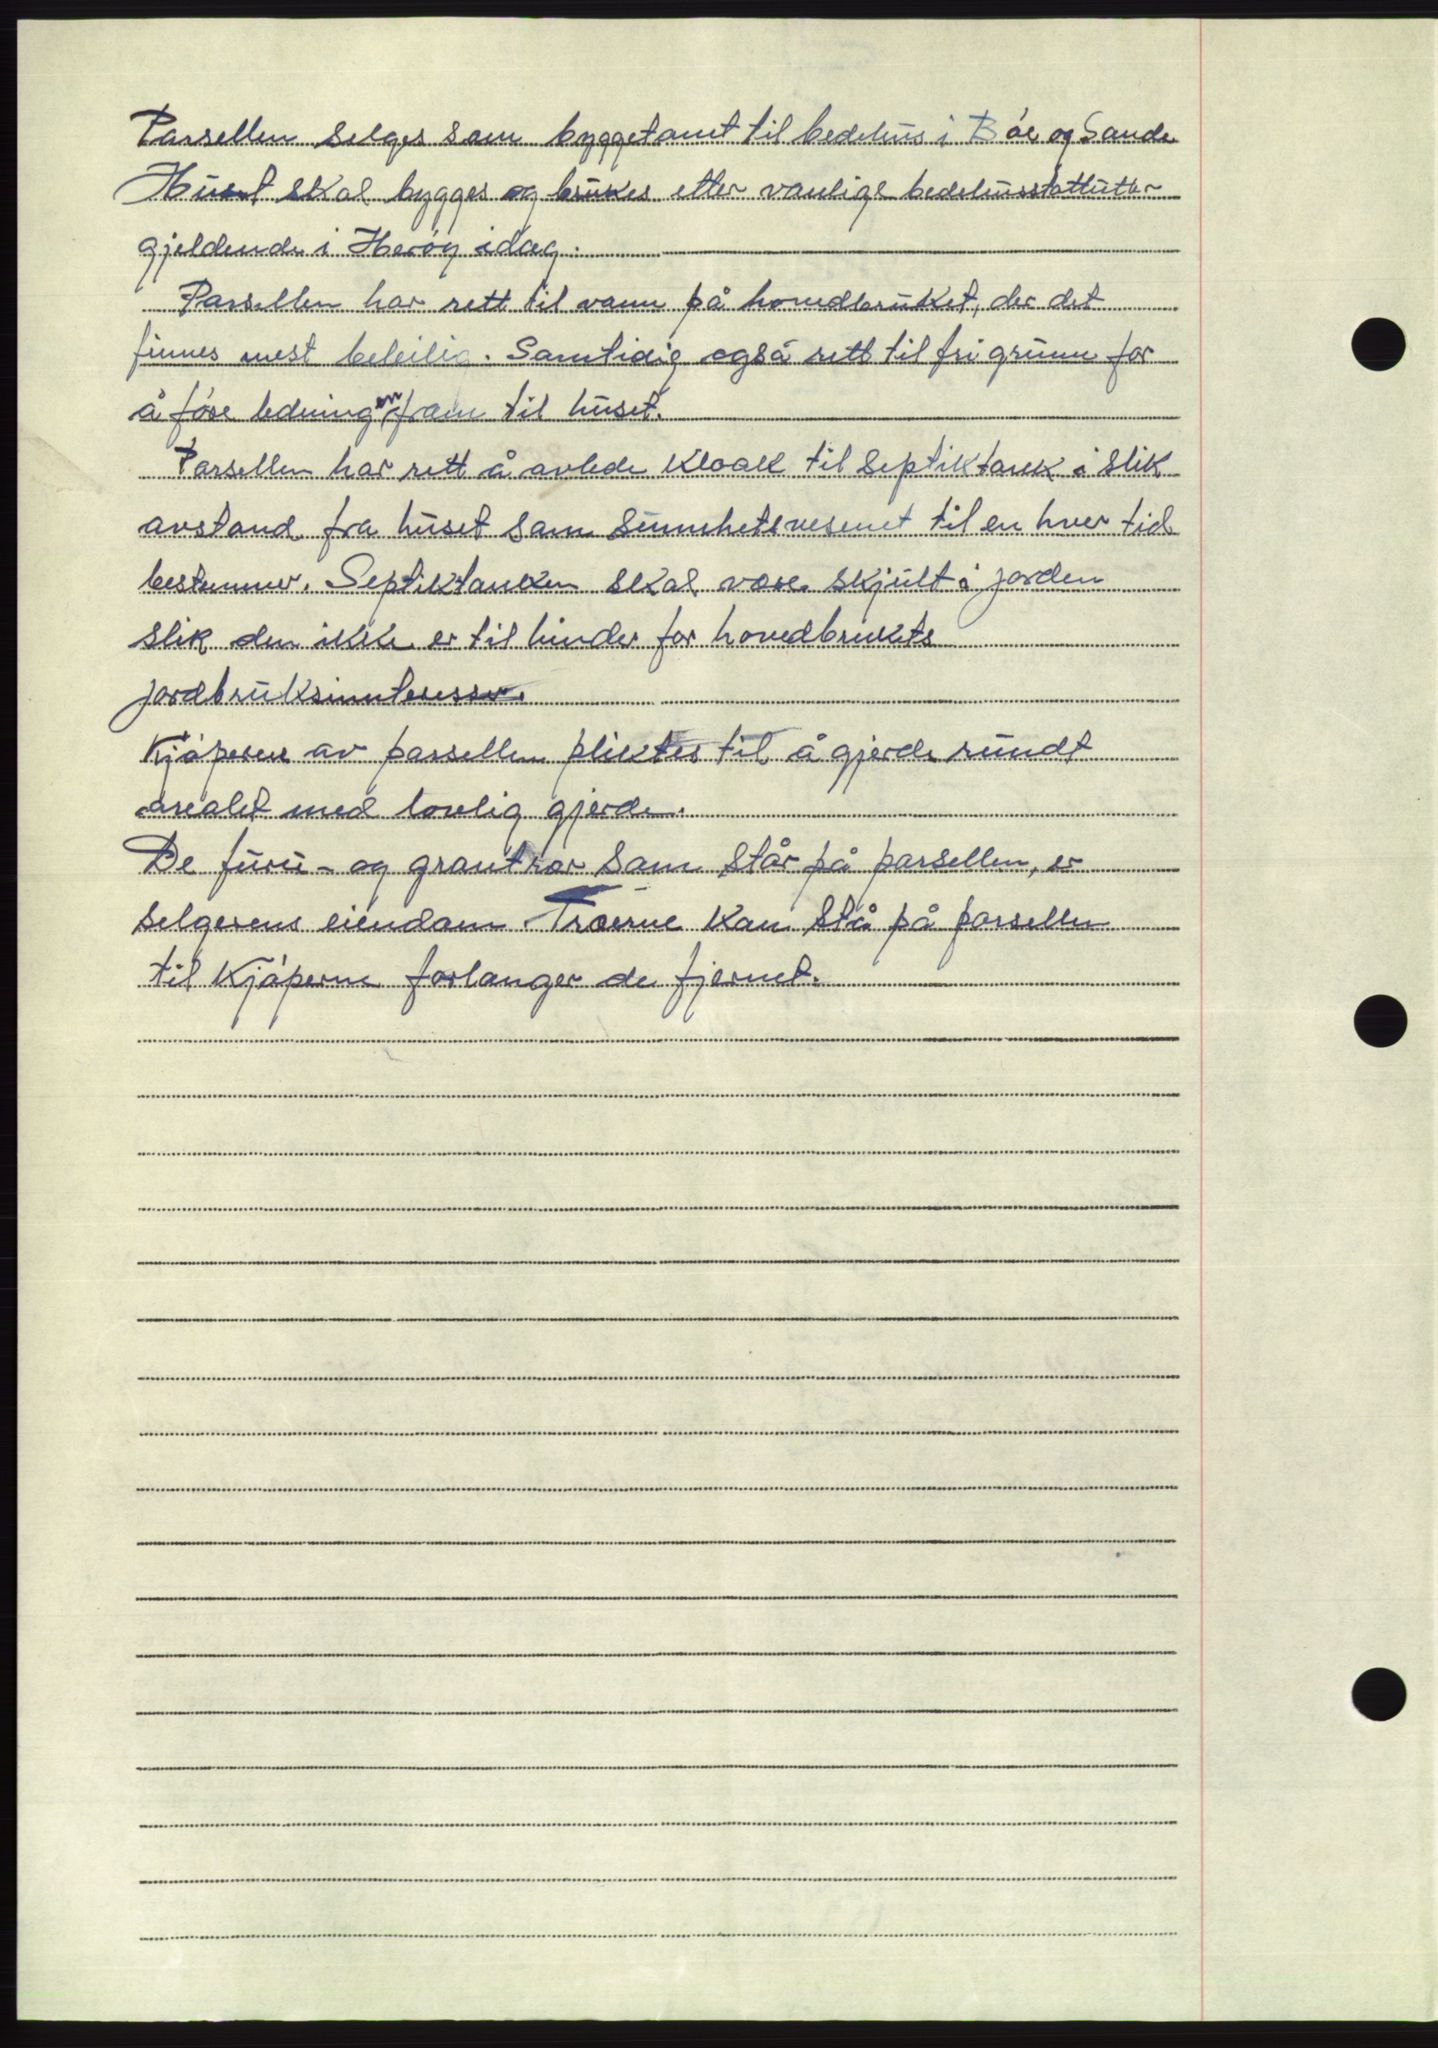 Parsellen selges som byggetomt til bedehus i Bøe og Sande
Huset skal bygges og brukes etter vanlige bedehusstattutter
gjeldende i Herøy idag.
Parsellen har rett til vann på hovedbruket, der det
finnes mest beleilig. Samtidig også rett til fri grunn for
å føre ledningen fram til huset.
Parsellen har rett å avlede kloakk til septiktank i slik
avstand fra huset som sunnhetsvesenet til en hver tid
bestemmer. Septiktanken skal være skjult i jorden
slik den ikke er til hinder for hovedbrukets
jordbruksinnteresser.
Kjøperen av parsellen pliktes til å gjerde rundt
arealet med lovlig gjerde.
De furu- og grantrær som står på parsellen, er
selgerens eiendom. Trærne kan stå på parsellen
til kjøperne forlanger de fjernet.